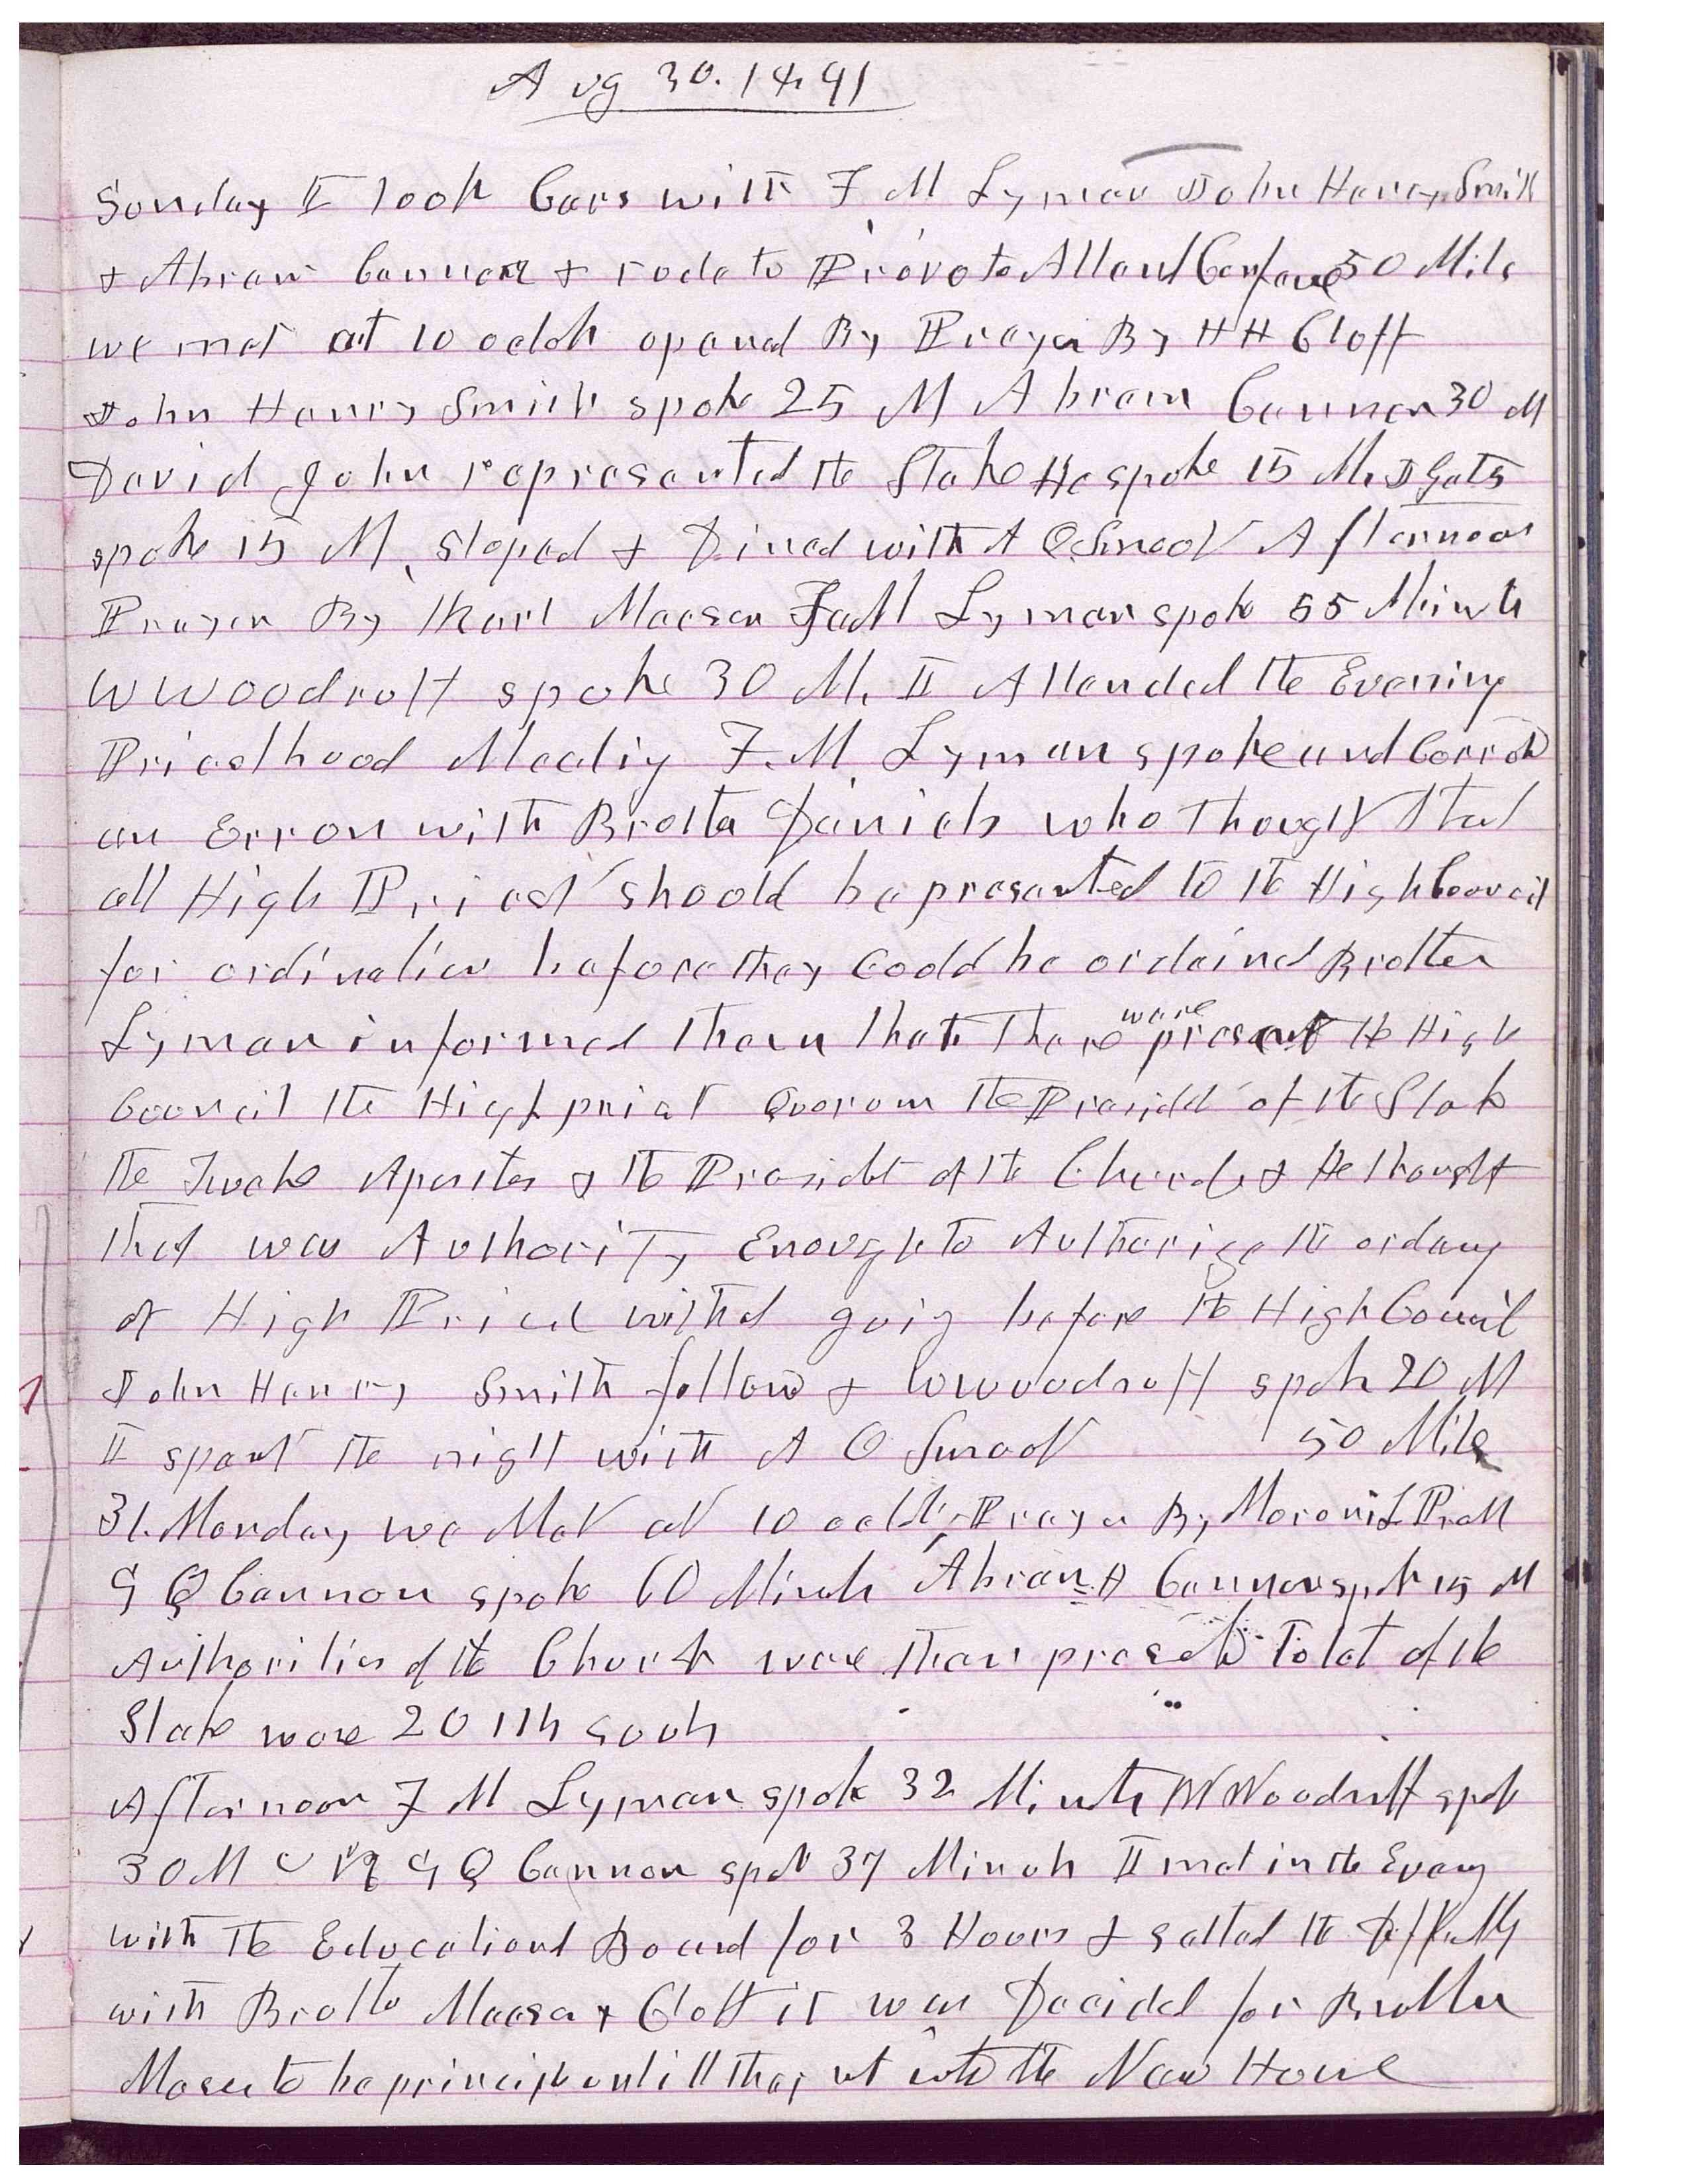 Aug 30. 1891
Sunday I took Cars with F M Lyman John Henry Smith
& Abram Cannon & rode to Provo to Attend Confrence 50 Mils
we met at 10 oclok opened By Prayer By H H Cloff
John Henry Smith spoke 25 M Abram Cannon 30 M
David John represented the Stake He spoke 15 M. J Gates
spoke 15 M. stoped & Dined with A O Smoot Afternoon
Prayer By Karl Maeser F M Lyman spoke 55 Minuts
W Woodruff spoke 30 M. I Attended the Evening
Priesthood Meetig F. M. Lyman spoke and Corrected
an Error with Brother Daniels who thought that
all High Priest should be presented to the High Council
for ordination before they Could be ordained Brother
Lyman informed them that there were present the High
Council the High priest Quorum the Presidet of the Stake
the Twelve Apostles & the Presidet of the Church & He thought
that was Authority Enough to Authorize the ordaing
of High Priest without goig before the High Council
John Henry Smith follow & W Woodruff spoke 20 M
I spent the night with A O Smoot 50 Mile
31. Monday we Met at 10 oclk Prayer By Moroni L Pratt
G Q Cannon spoke 60 Minuts Abram H Cannon spok 15 M
Authorities of the Church were then presented Total of the
Stake were 20 11h souls
Afternoon F M Lyman spoke 32 Minuts W Woodruff spok
30 M G Q Cannon spok 37 Minuts I met in the Eveng
with the Educational Board for 3 Hours & settled the Diffculty
with Brother Maeser & Cloff it was Decided for Brother
Maser to be princip untill they ut into the New House